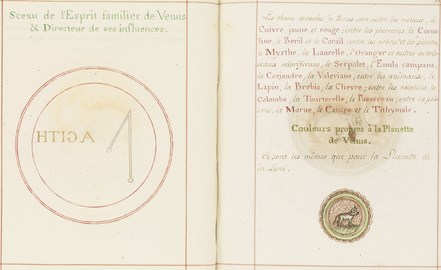 Sceau de l'Esprit familier de Venus
& Directeur de ses influences.
HAGITH
Cuivre jaune et rouge; entre les pierreries, la Corna-
line, le Beril et le Corail; entre les arbres et les plantes,
le Myrthe, la Laurelle, l'Oranger et autres arbris-
seaux odoriferans, le Serpolet, l'Enula campana,
la Coriandre, la Valeriane; entre les animaux, le
Lapin, la Brebis, la Chevre; entre les volatiles, la
Colombe, la Tourterelle, le Passereau; entre les pois-
sons, la Morue, le Cancre et le Tithymale.
Couleurs propres à la Planette
de Venus.
Ce sont les mêmes que pour la Planette de
la Lune.